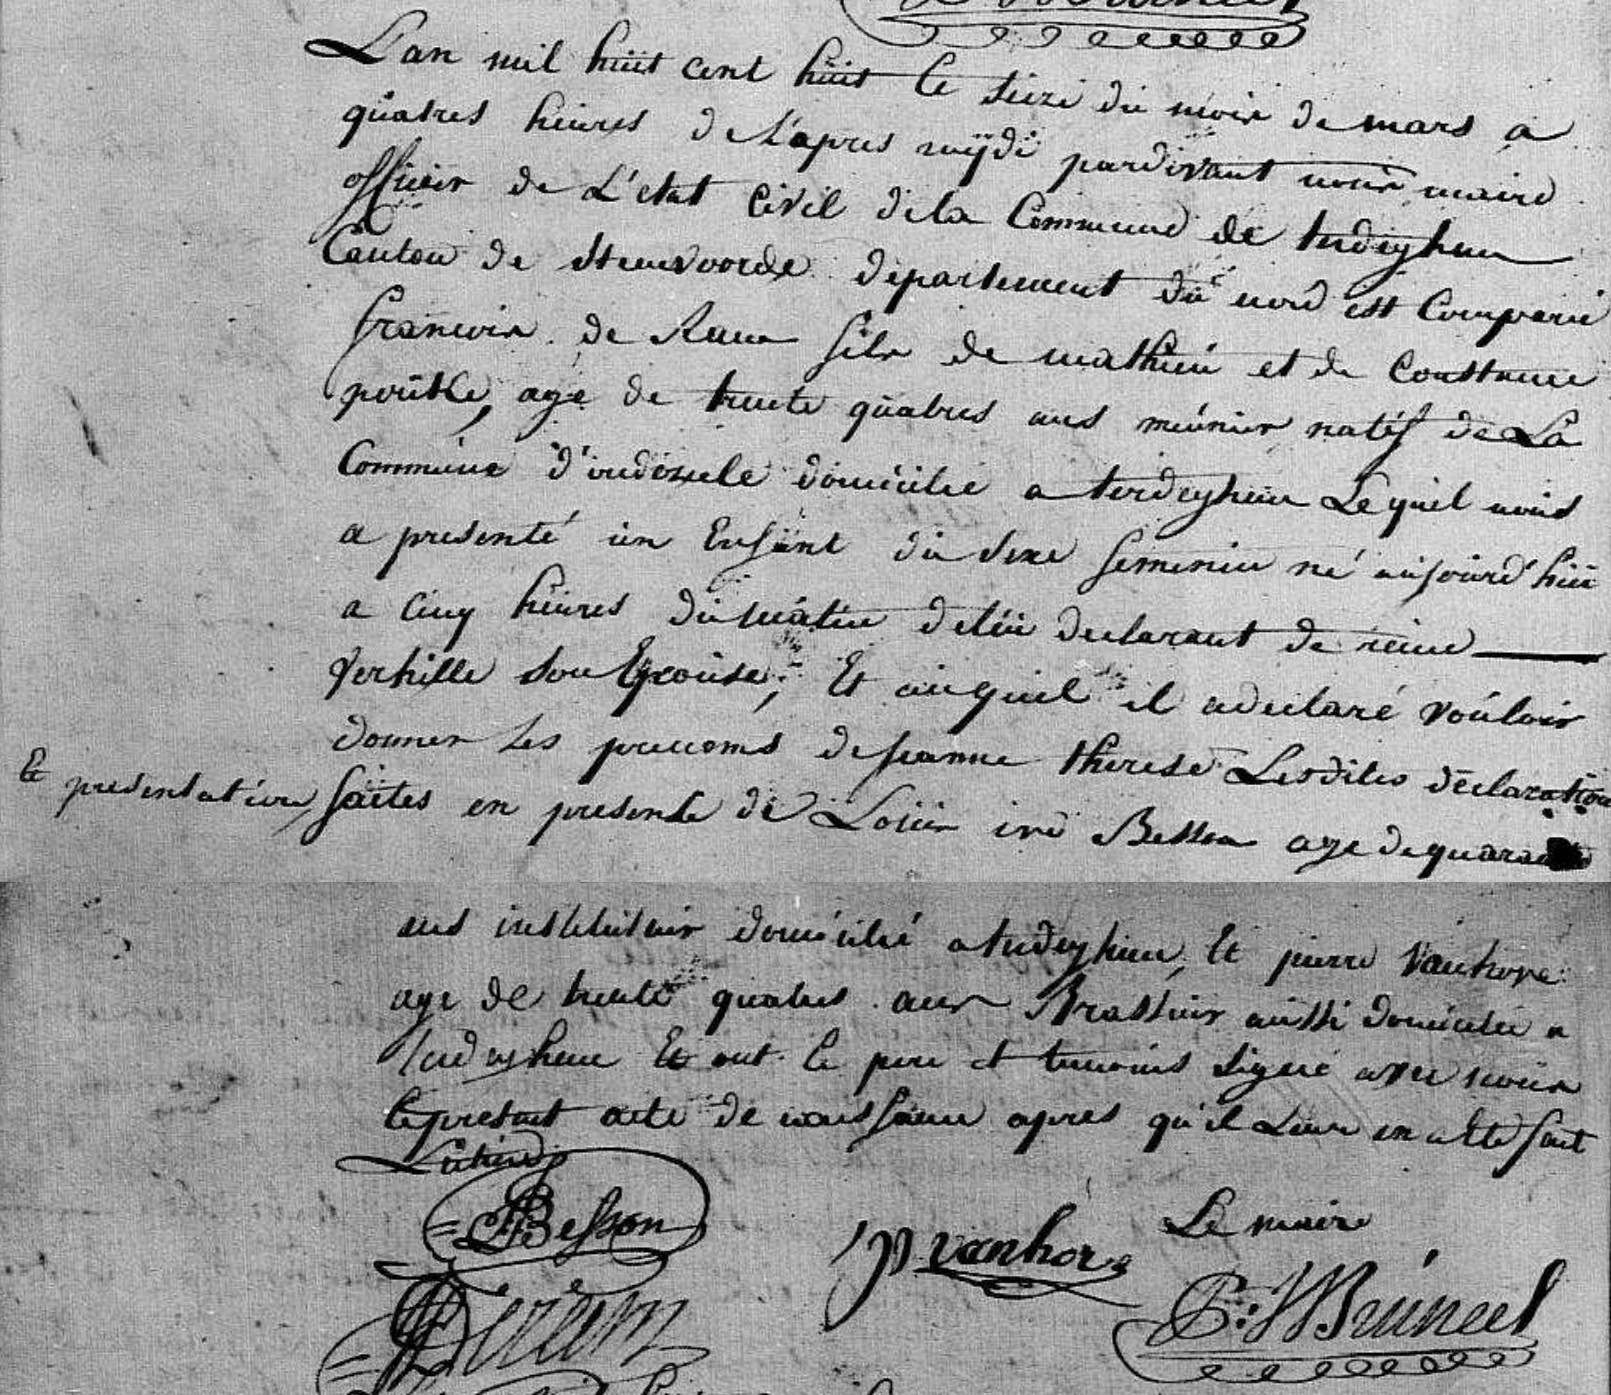 L'an mil huit cent huit le seize du mois de mars a
quatres heures de L'apres mydi pardevant nous maire
officier de L'etat Civil de la Commune de terdeghem
Canton de Steenvoorde departement du nord est Comparu
francois de Raem fils de mathieu et de Constance
poutke, age de trente quatres ans meunier natif de La
Commune d'oudezeele domicilie a terdeyhem Lequel nous
a presenté un Enfant du Sexe feminin né aujourd'hui
a cinq heures du matin de lui declarant de reine
Verhille Son Epouse, Et auquel il a declaré vouloir
donner les prenoms de jeanne therese Lesdites declaration
Et presentation faites en presence de Louis Besson age de quarante
ans instituteur domicilié a terdeyhem, Et pierre Vanhove
age de trente quatres ans Brasseur aussi domicilie a
terdeyhem Et ont le pere et temoins Signé avec nous
le present acte de naissance apres qu'il Leur en a eté fait
Lecture
Besson
Le maire
P vanhove
Deraem
Bruneel